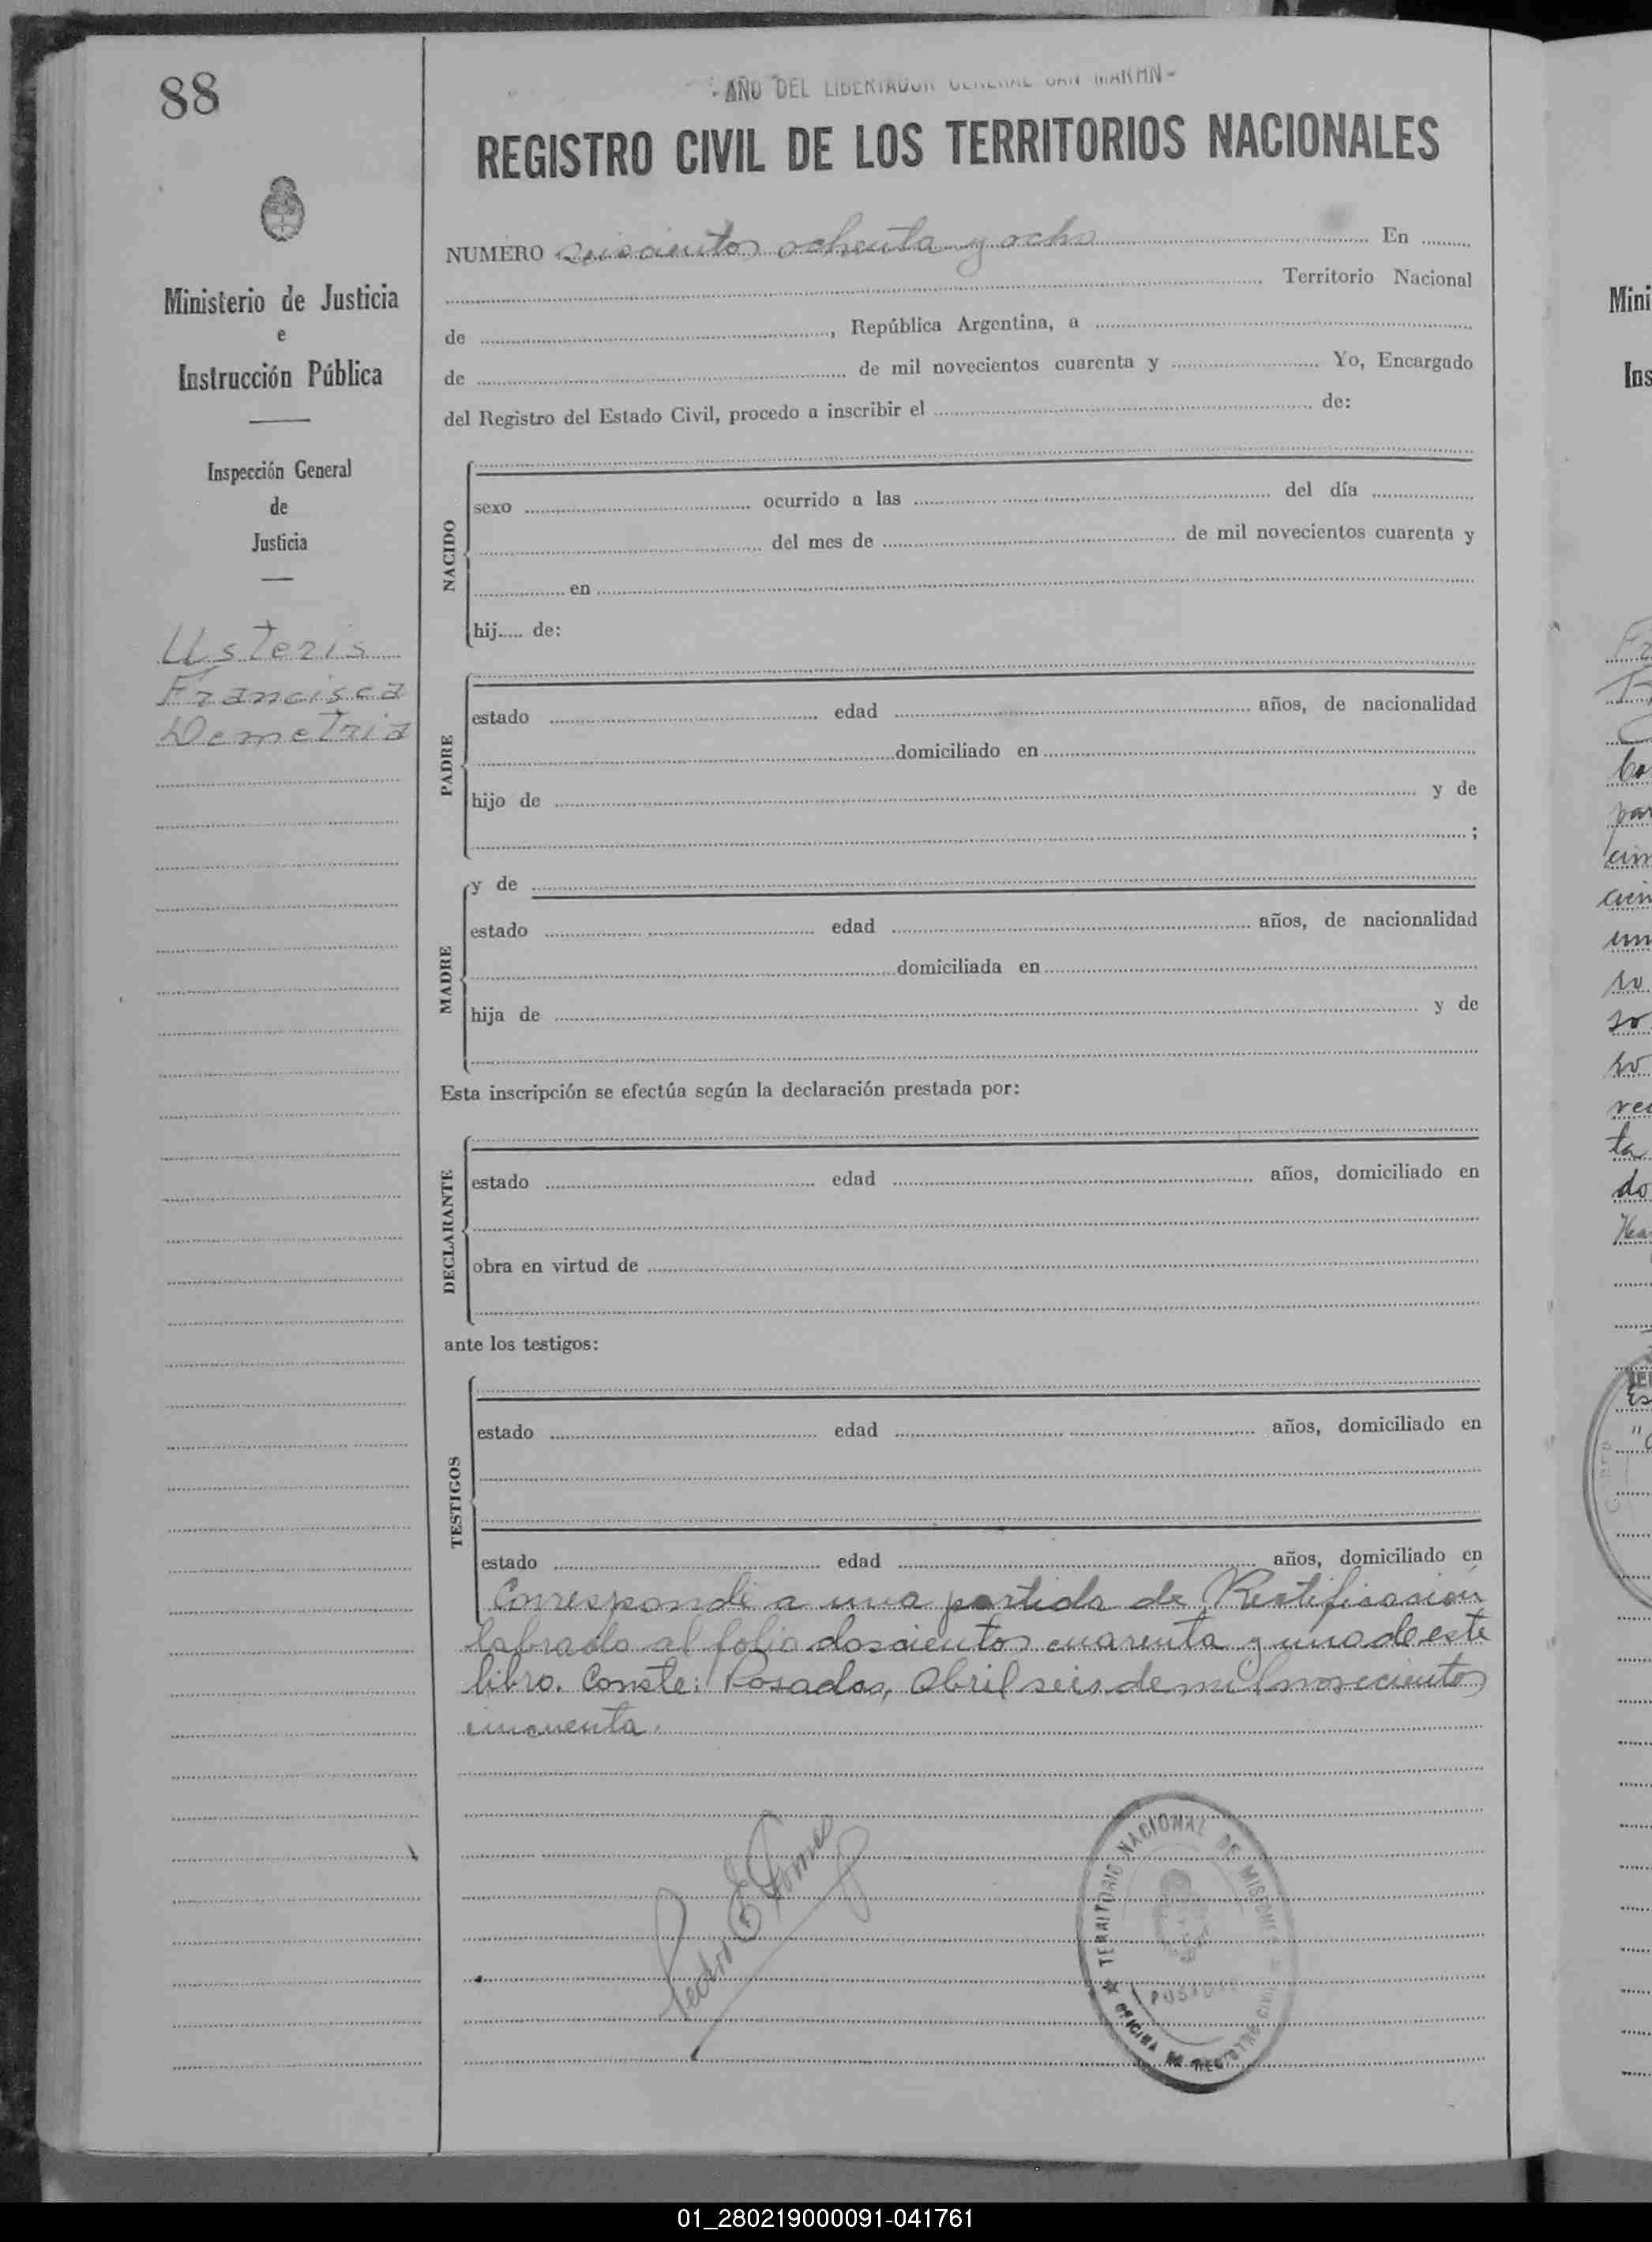 88
- AÑO DEL LIBERTADOR GENERAL SAN MARTIN -
REGISTRO CIVIL DE LOS TERRITORIOS NACIONALES
Ministerio de Justicia
e
Instrucción Pública
Inspección General
de
Justicia
Usteris
Francisca
Demetria
NUMERO seiscientos ochenta y ocho En
Territorio Nacional
de , República Argentina, a
de de mil novecientos cuarenta y Yo, Encargado
del Registro del Estado Civil, procedo a inscribir el de:
NACIDO
sexo ocurrido a las del día
del mes de de mil novecientos cuarenta y
en
hij..... de:
PADRE
estado edad años, de nacionalidad
domiciliado en
hijo de y de
;
MADRE
y de
estado edad años, de nacionalidad
domiciliada en
hija de y de
Esta inscripción se efectúa según la declaración prestada por:
DECLARANTE
estado edad años, domiciliado en
obra en virtud de
ante los testigos:
TESTIGOS
estado edad años, domiciliado en
estado edad años, domiciliado en
Corresponde a una partida de Rectificación
labrada al folio doscientos cuarenta y uno de este
libro. Conste: Posadas, Abril seis de mil novecientos
cincuenta.
Pedro E Gomes
TERRITORIO NACIONAL DE MISIONES
POSADAS
OFICINA DE REGISTRO CIVIL
Mini
Ins
01_280219000091-041761